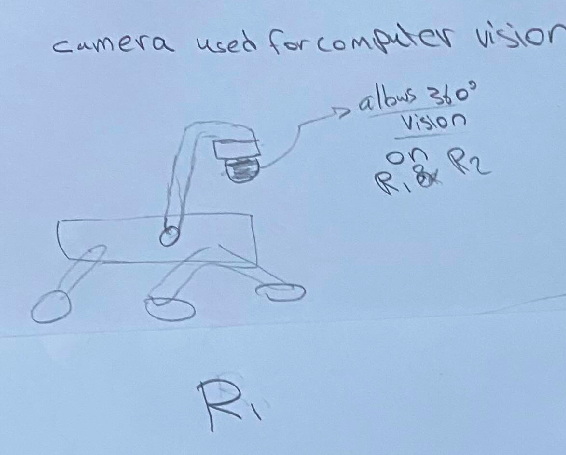 camera used for computer vision
albws 360°
vision
on
R1 & R2
R1